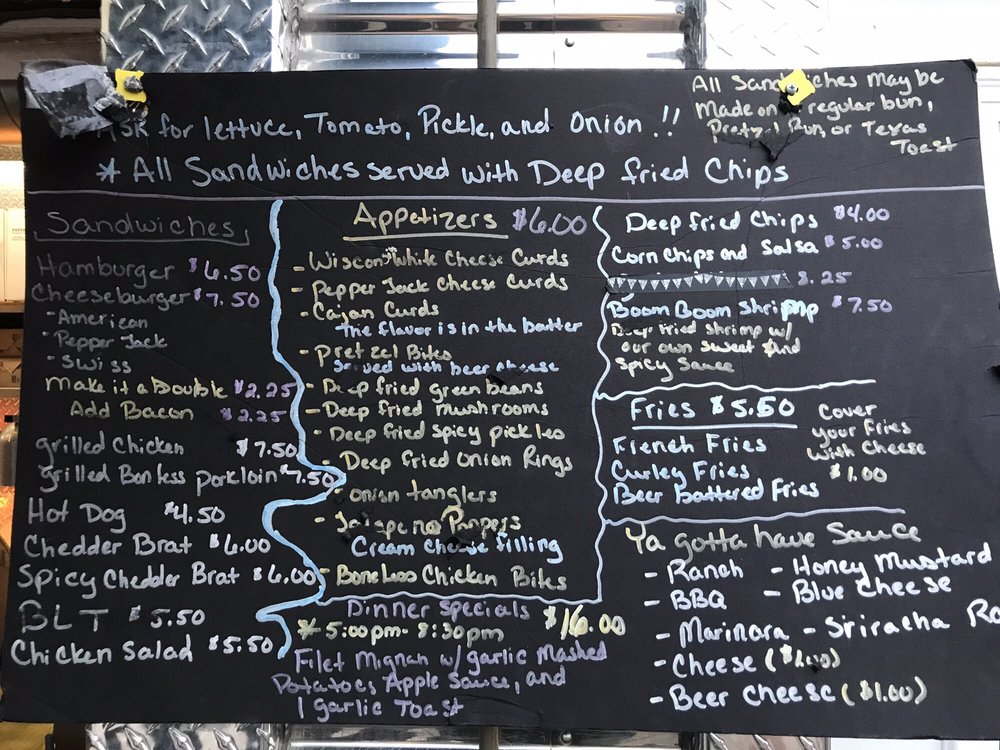 Ask for lettuce, Tomato, Pickle, and Onion !!
* All Sandwiches served with Deep fried Chips
All Sandwiches may be
Made on regular bun,
Pretzel Bun, or Texas
Toast
Sandwiches
Hamburger $6.50
Cheeseburger $7.50
- American
- Pepper Jack
- Swiss
Make it a Double $2.25
Add Bacon $2.25
grilled Chicken $7.50
grilled Bonless porkloin $7.50
Hot Dog $4.50
Chedder Brat $6.00
Spicy Chedder Brat $6.00
BLT $5.50
Chicken Salad $5.50
Appetizers $6.00
- Wiscon White Cheese Curds
- Pepper Jack Cheese Curds
- Cajan Curds
The flavor is in the batter
- Pretzel Bites
Served with beer cheese
- Deep fried green beans
- Deep fried mushrooms
- Deep fried spicy pickles
- Deep fried Onion Rings
- Onion tanglers
- Jalapeno Poppers
Cream cheese filling
- Boneless Chicken Bites
Dinner specials $16.00
* 5:00pm - 8:30pm
Filet Mignan w/ garlic Mashed
Potatoes, Apple Sauce, and
1 garlic Toast
Deep fried Chips $4.00
Corn Chips and Salsa $5.00
8.25
Boom Boom Shrimp $7.50
Deep fried shrimp w/
our own sweat and
spicy sauce
Fries $5.50
French Fries
Curley Fries
Beer battered Fries
Cover
your Fries
with Cheese
$1.00
Ya gotta have Sauce
- Ranch - Honey Mustard
- BBQ - Blue Cheese
- Marinara - Sriracha Ra
- Cheese ($1.00)
- Beer cheese ($1.00)